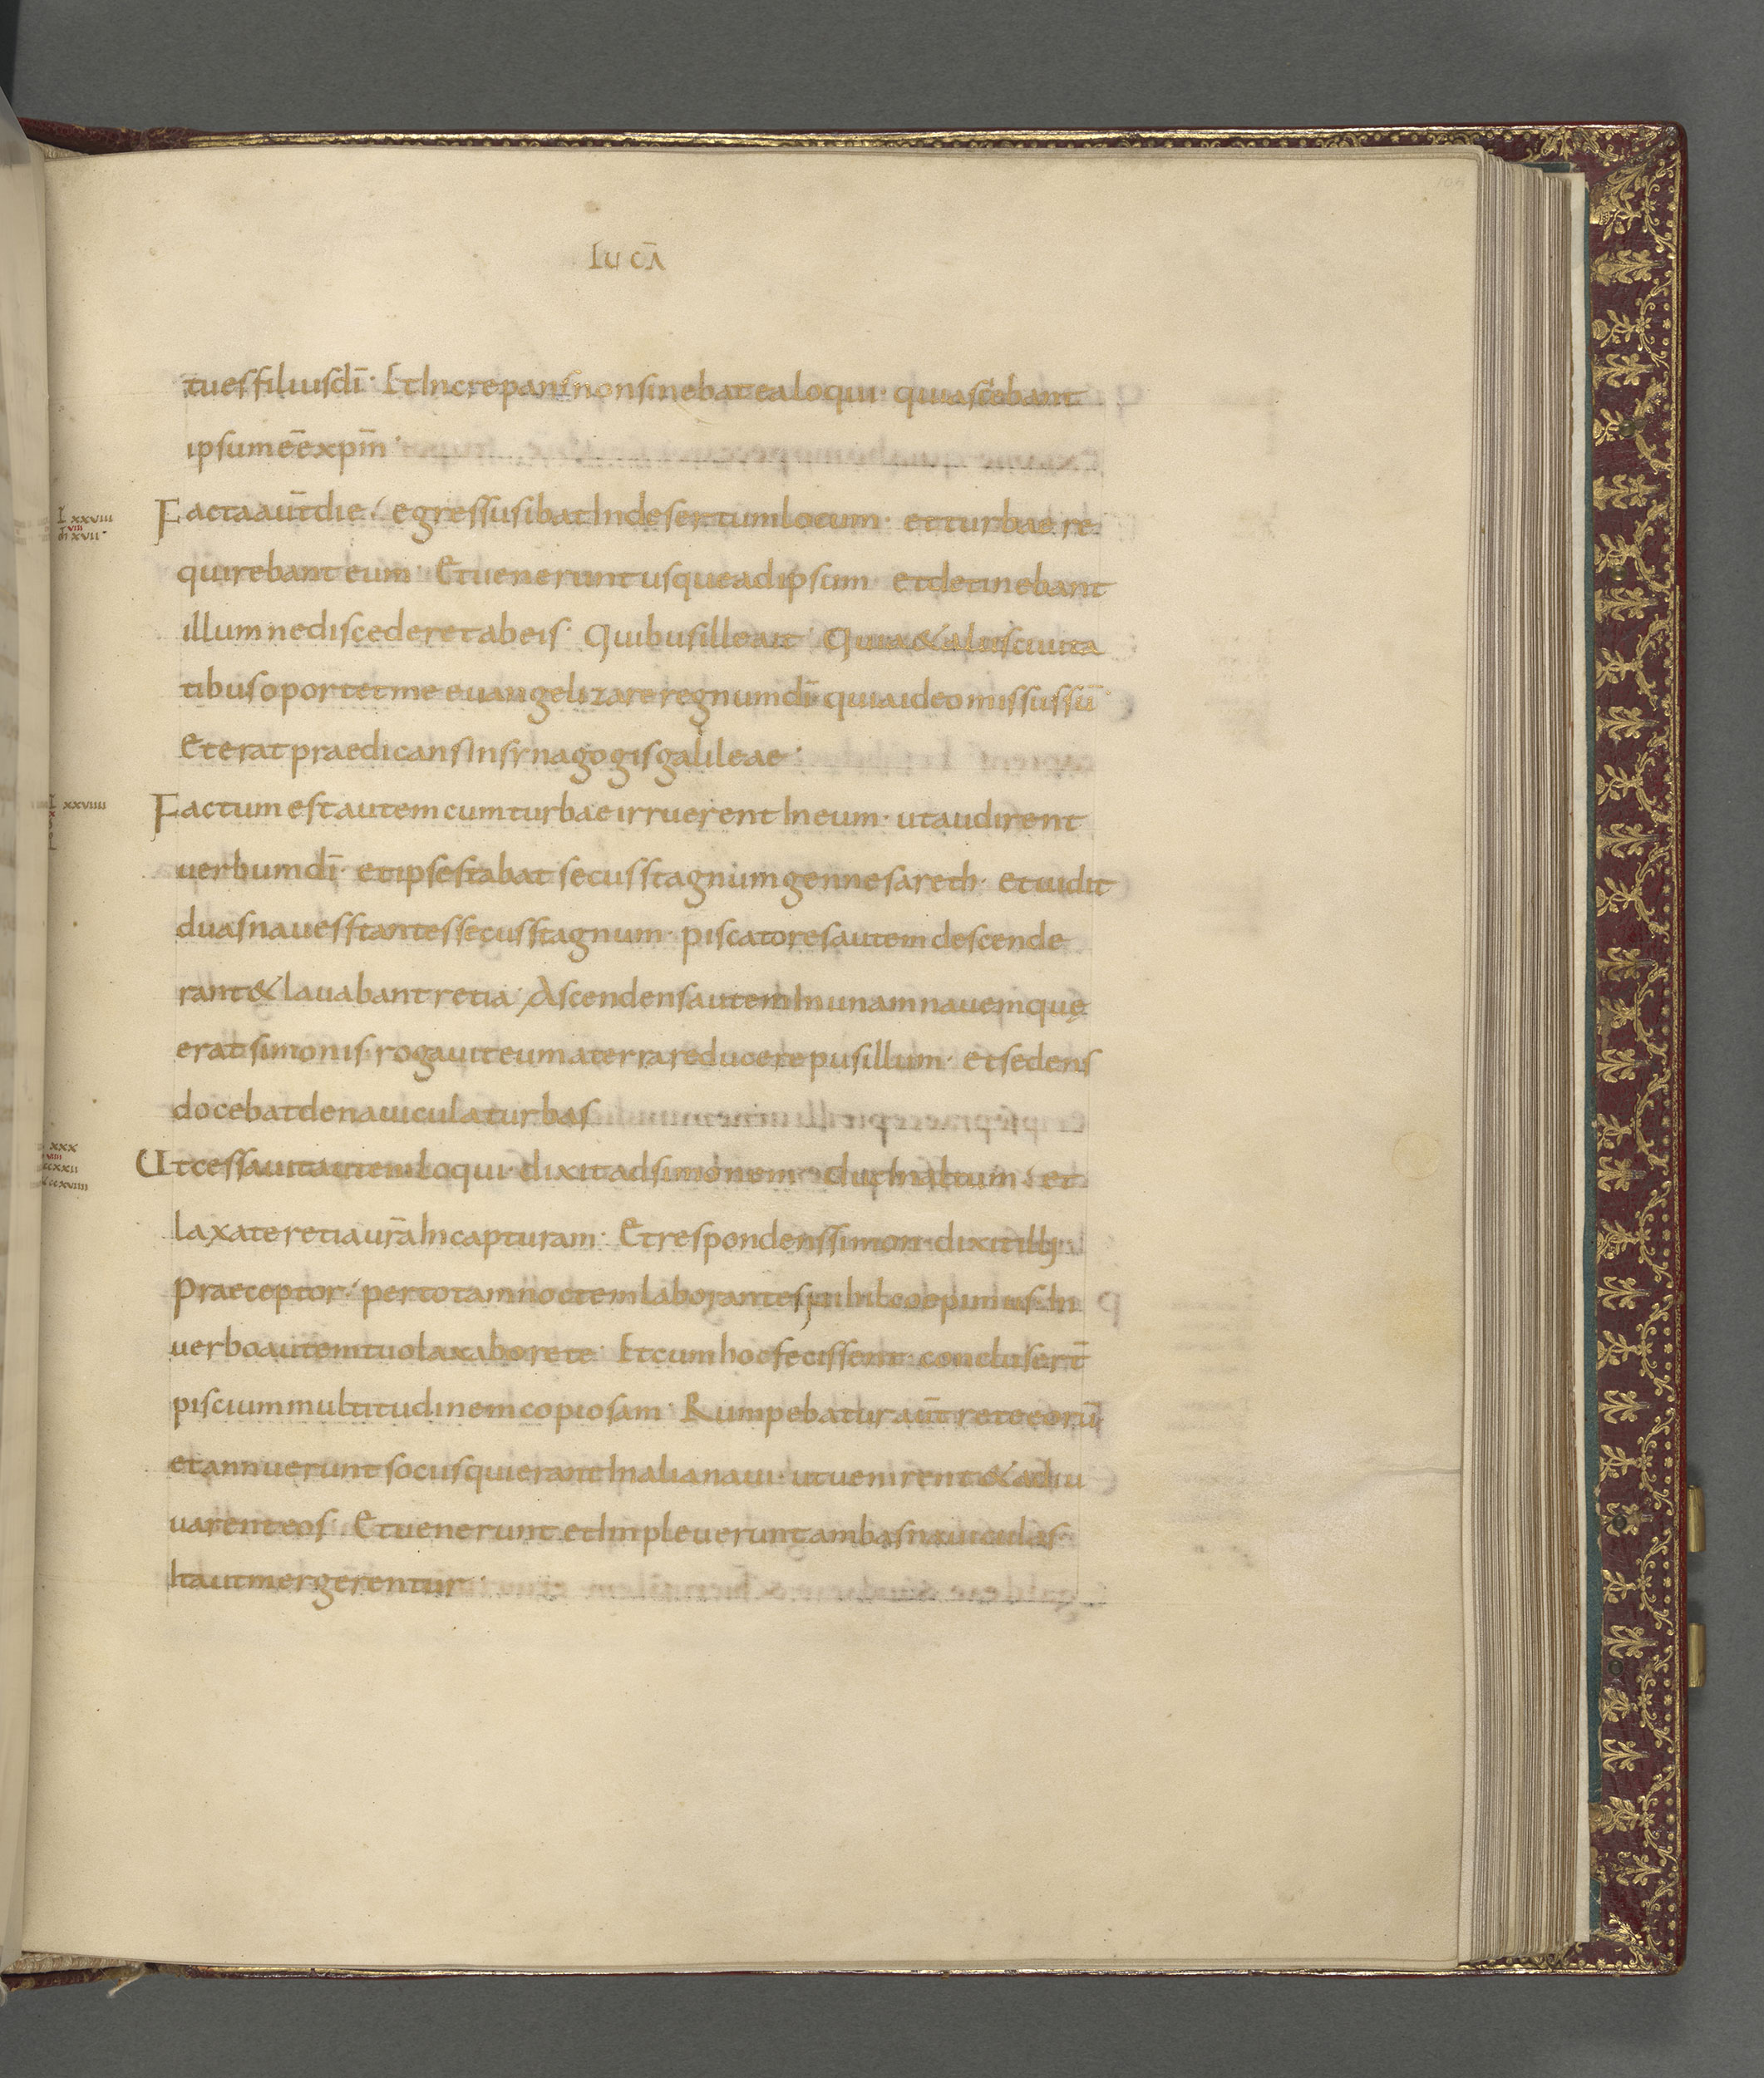 lucā
tu es filius dī · Et increpans non sinebat ea loqui · quia sciebant
ipsum eē xpm̄ ·
Facta aūt die · egressus ibat in desertum locum · et turbae re
quirebant eum · Et uenerunt usque ad ipsum · et detinebant
illum ne discederet ab eis · Quibus ille ait · Quia & aliis ciuita
tibus oportet me euangelizare regnum dī · quia ideo missus sū ·
Et erat praedicans in synagogis galileae ·
Factum est autem cum turbae irruerent in eum · ut audirent
uerbum dī · et ipse stabat secus stagnum gennesareth · et uidit
duas naues stantes secus stagnum · piscatores autem descende
rant & lauabant retia · Ascendens autem in unam nauem quę
erat simonis · rogauit eum a terra reducere pusillum · et sedens
docebat de nauicula turbas
Ut cessauit autem loqui · dixit ad simonem · duc in altum · et
laxate retia ur̄a in capturam · Et respondens simon · dixit illi ·
Praeceptor · per totam noctem laborantes nihil coepimus · In
uerbo autem tuo laxabo rete · Et cum hoc fecissent · concluser̄t
piscium multitudinem copiosam · Rumpebatur aūt rete eorū ·
et annuerunt sociis qui erant in alia naui · ut uenirent & adiu
uarent eos · Et uenerunt et impleuerunt ambas nauiculas ·
ita ut mergerentur ·